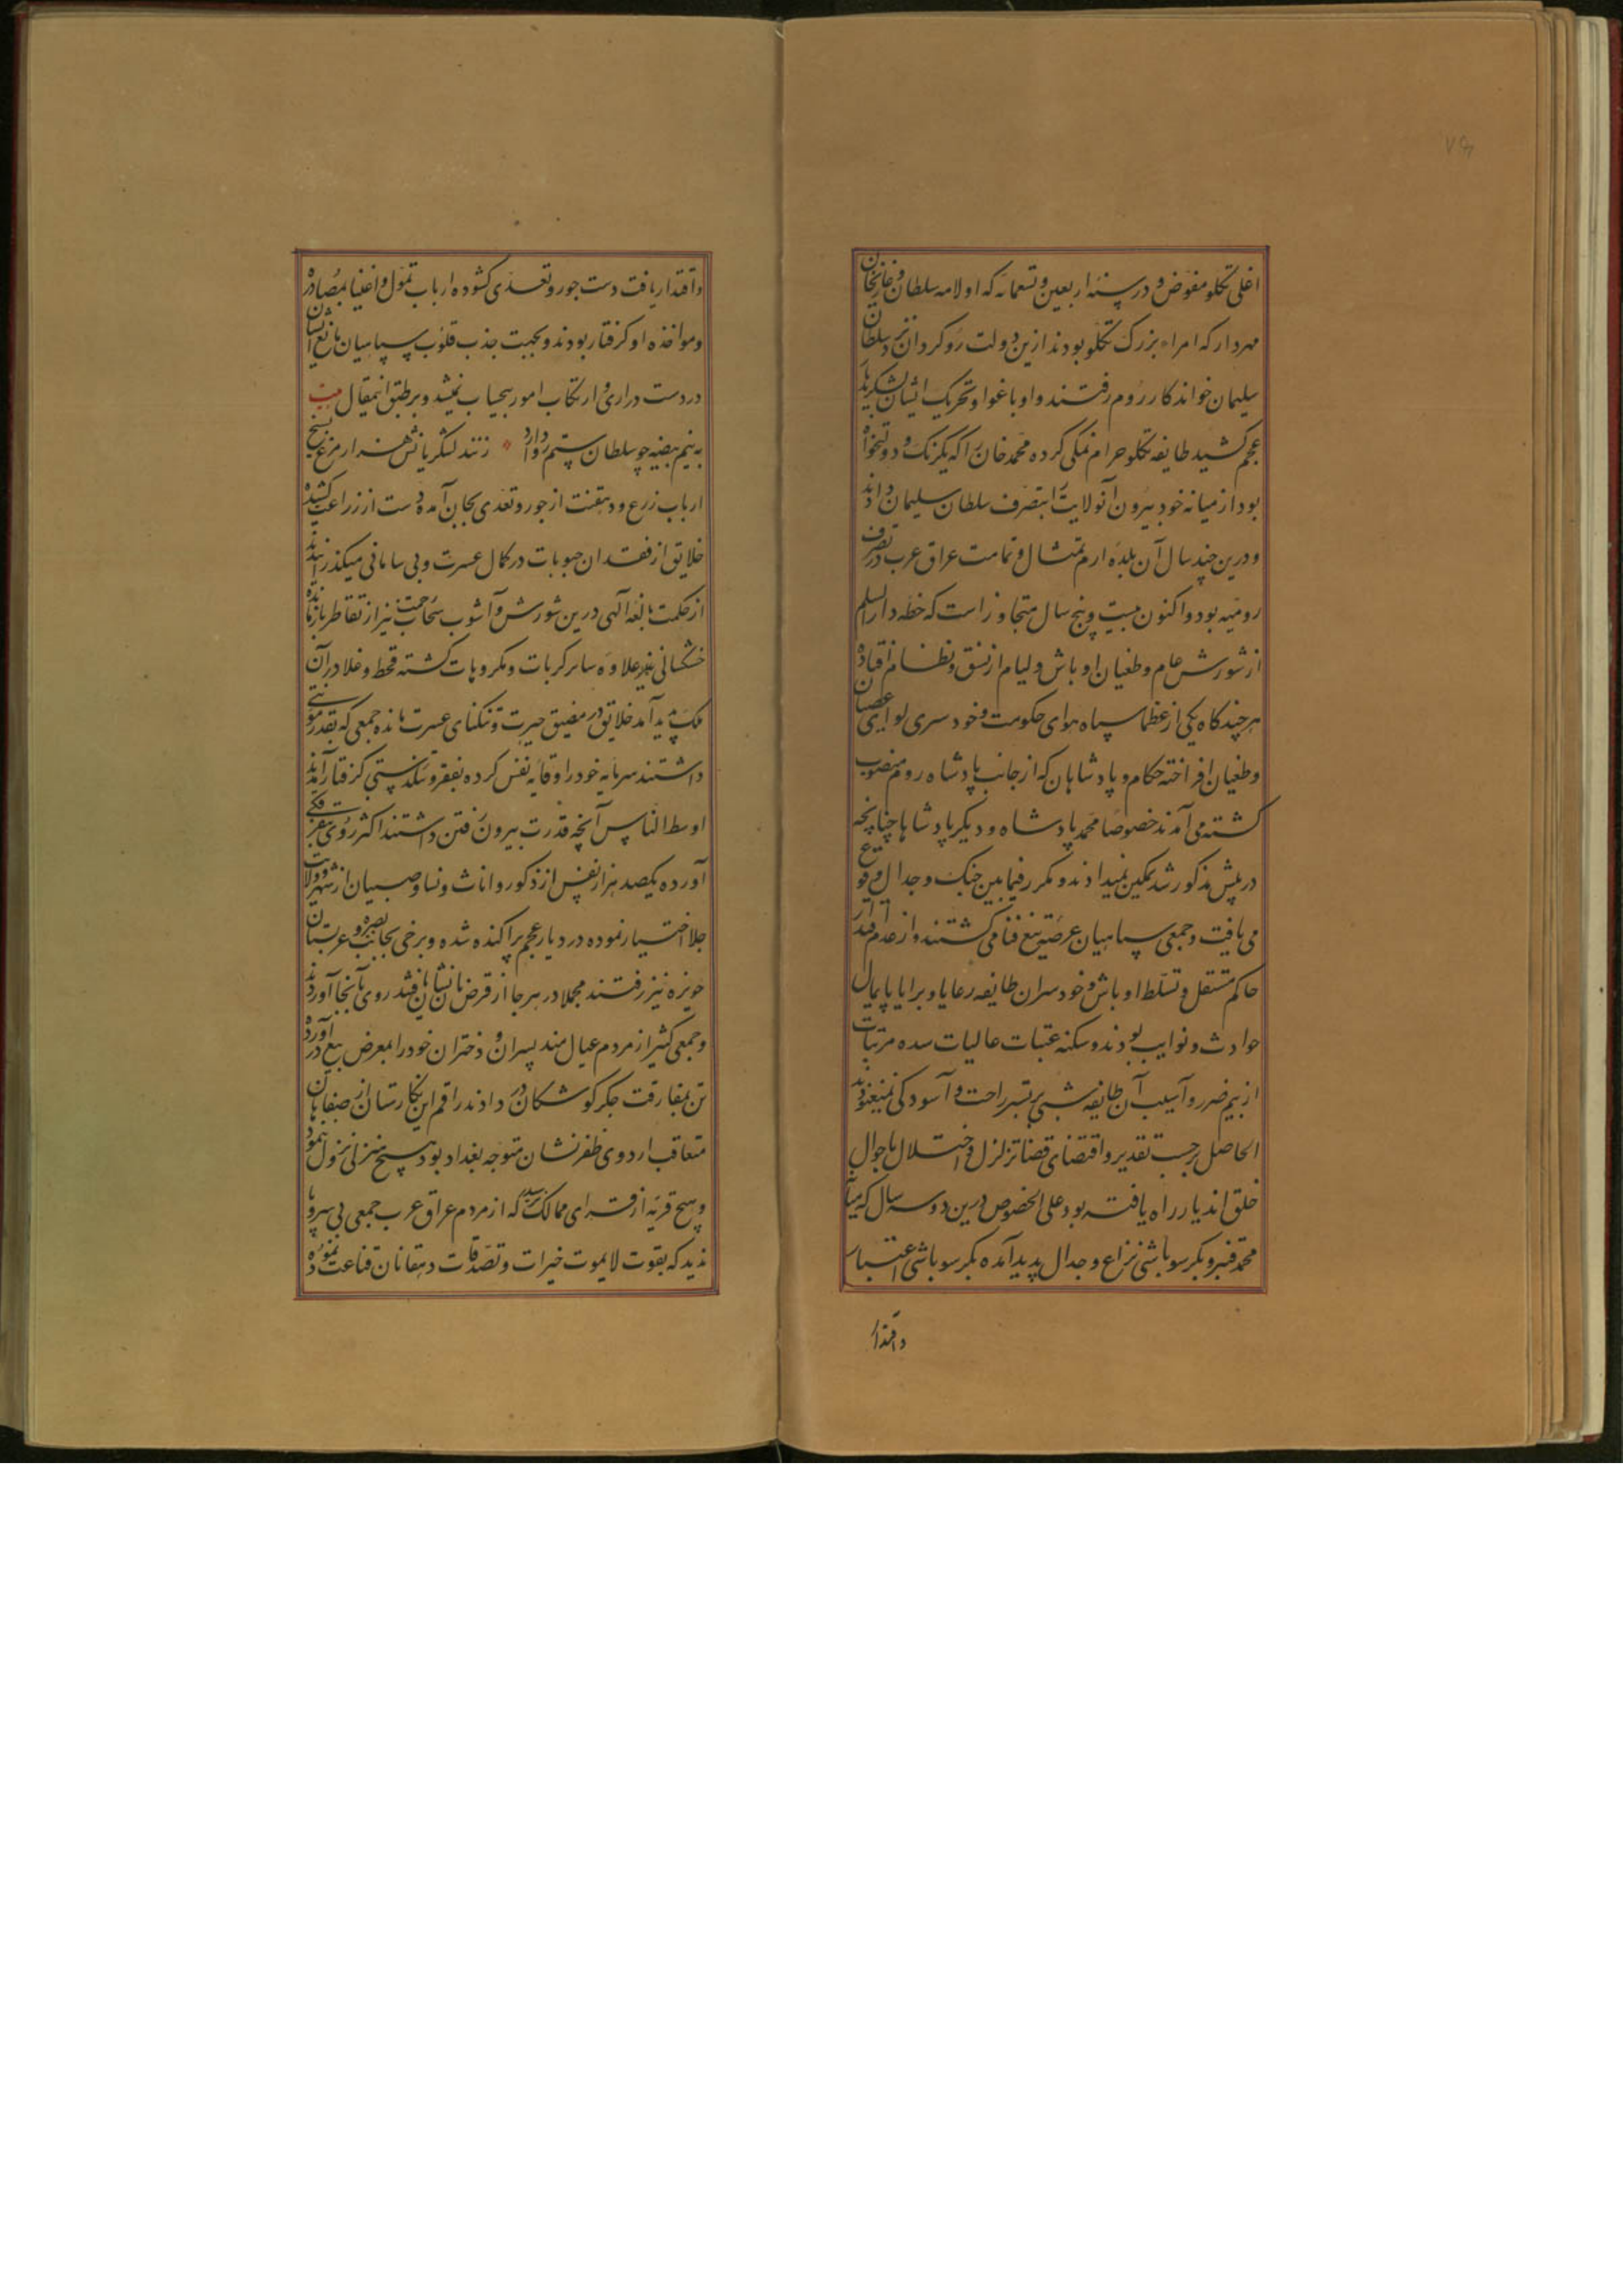 اغلی تکلو مفوض و در سنه اربعین و تسعمائه که اولامه سلطان و غازیخان
مهردار که امراء بزرک تکلو بودند ازین دولت روکردان نزد سلطان
سلیمان خواندکار روم رفتند و او باغوا و تحریک ایشان لشکر بدیار
عجم کشید طایفه تکلو حرام نمکی کرده محمد خان را که یکرنک و دولتخواه
بود از میانه خود بیرون آنولایت را بتصرف سلطان سلیمان دادند
و درین چند سال آن بلده ارم تمثال و تمامت عراق عرب در تصرف
رومیه بود و اکنون بیست و پنج سال متجاوز است که خطه دارالسلم
از شورش عام و طغیان اوباش و لیام از نسق و نظام افتاده
هر چند کاه یکی از عظما سپاه هوای حکومت و خودسری لوای عصیان
و طغیان افراخته حکام و پادشاهان که از جانب پادشاه روم منصوب
کشته می آمدند خصوصا محمد پادشاه و دیکر پادشاها چنانچه
در پیش مذکور شد تمکین نمیدادند و مکرر فیمابین جنک و جدال وقوع
می یافت و جمعی سپاهیان عرضه تیغ فنا می کشتند و از عدم اقتدار
حاکم مستقل و تسلط اوباش و خودسران طایفه رعایا و برایا پایمال
حوادث و نوایب بودند و سکنه عتبات عالیات سده مرتبات
از بیم ضرر و آسیب آن طایفه شبی بر بستر راحت و آسودکی نمیغنودند
الحاصل برحسب تقدیر و اقتضای قضا تزلزل و اختلال باحوال
خلق اندیار راه یافته بود علی الخصوص درین دو سه سال که میانه
محمد قنبر و بکر سوباشی نزاع و جدال پدید آمده بکر سوباشی اعتبار
و اقتدار
و اقتدار یافت دست جور و تعدی کشوده ارباب تمول و اغنیا بمصادره
و مواخذه او کرفتار بودند و بجهت جذب قلوب سپاهیان مانع ایشان
در دست درازی و ارتکاب امور بیحساب نمیشد و بر طبق اینمقال بیت
به نیم بیضه چو سلطان ستم روا دارد زنند لشکریانش هزار مرغ بسیخ
ارباب زرع و دهقنت از جور و تعدی بجان آمده دست از زراعت کشیده
خلایق از فقدان حبوبات در کمال عسرت و بی سامانی میکذرانیدند
از حکمت بالغه الهی درین شورش و آشوب سحاب رحمت نیز از تقاطر بازمانده
خشکسالی نیز علاوه سایر کربات و مکروهات کشته قحط و غلا در آن
ملک پدید آمد خلایق در مضیق حیرت و تنکنای عسرت مانده جمعی که بقدر موٴنتی
داشتند سرمایه خود را وقایه نفس کرده بفقر و تنکدستی کرفتار آمدند
اوسط الناس آنچه قدرت بیرون رفتن داشتند اکثر روی بعزیمت
آورده یکصد هزار نفس از ذکور و اناث و نسا و صبیان از شهر و ولایت
جلا اختیار نموده در دیار عجم پراکنده شده و برخی بجانب بصره و عربستان
حویزه نیز رفتند مجملا در هر جا از قرص نان نشان یافتند روی بآنجا آوردند
و جمعی کثیر از مردم عیال مند پسران و دختران خود را بمعرض بیع درآورده
تن بمفارقت جکرکوشکان در دادند راقم این نکارستان از صفاهان
متعاقب اردوی ظفرنشان متوجه بغداد بود هیچ منزلی نزول ننمود
و هیچ قریه از قرای ممالک نرسید که از مردم عراق عرب جمعی بی سر و پا
ندید که بقوت لایموت خیرات و تصدقات دهقانان قناعت ننموده